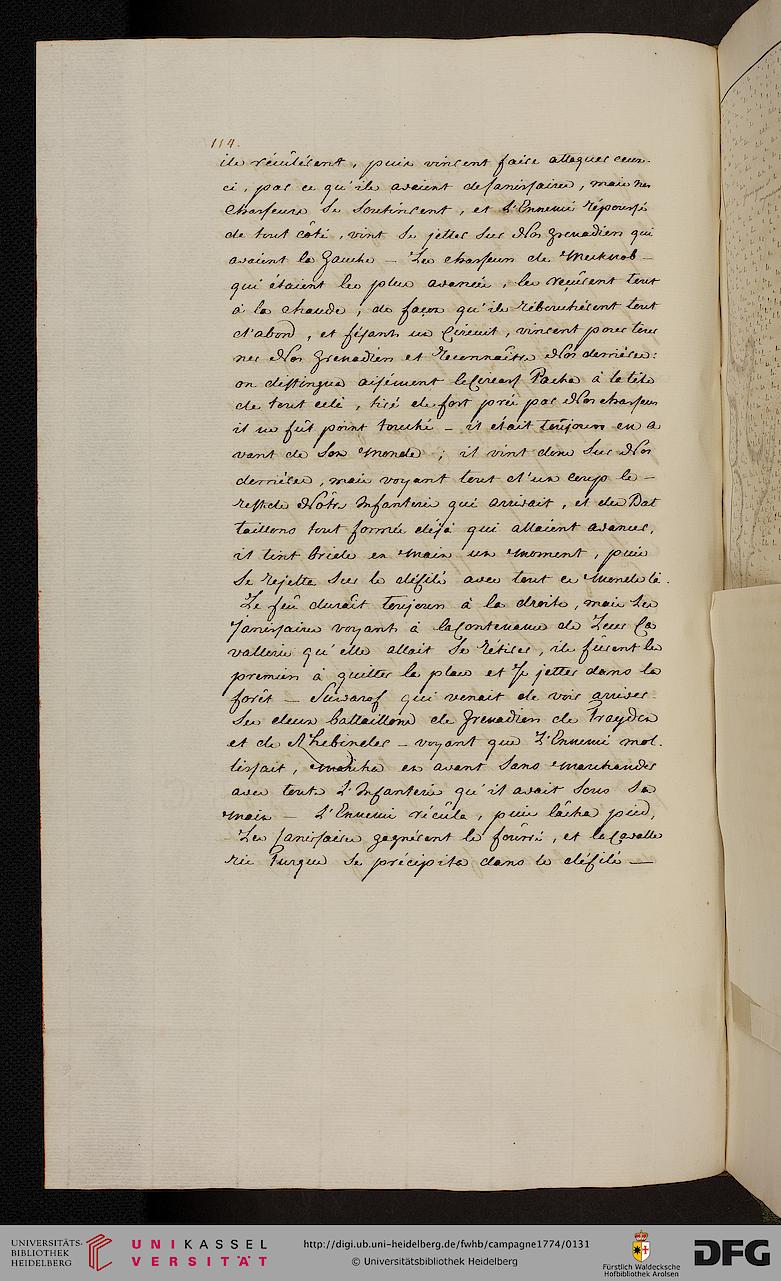 114.
ils réculérent, puis vinrent faire attaquer ceux-
ci, par ce qu'ils avaient de Janissaires, mais nos
Chasseurs se soutinrent, et L'Ennemi répoussé
de tout côté, vint se jetter sur Nos grenadiers qui
avaient la gauche – Les chasseurs de Meknob –
qui étaient les plus avancés, les reçûrent tout
à la chaude, de façon qu'ils rébrouchérent tout
d'abord, et fésant un Circuit, vinrent pour tour
ner Nos grenadiers et reconnaître Nos derriéres:
on distingua aisément le Pacha à la tête
de tout cela, tiré de fort prés par Nos chasseurs
il ne fût point touché – il était toûjours en a
vant de son Monde; il vint donc sur Nos
derriéres, mais voyant tout d'un coup le –
reste de Nôtre Infanterie qui arrivait, et des Bat
taillons tout formés déjà qui allaient avancer,
il tint bride en main un moment, puis
se rejetta sur le défilé avec tout ce Monde là.
Le feu durait toujours à la droite, mais les
Janissaires voyants à la Contenance de Leur Ca
vallerie qu'elle allait se retirer, ils fûrent les
premiers à quitter la place et se jetter dans la
forêt – Suwarof qui venait de voir arriver
Ses deux battaillons de grenadiers de Trayden
et de Rhebinder – voyant que L'Ennemi mol-
lissait, marcha en avant sans marchander
avec toute L'Infanterie qu'il avait sous sa
main – L'Ennemi récûla, puis lâcha pied,
Les Janissaires gagnérent le fourré, et la Cavalle
rie Turque se précipita dans le défilé —
UNIVERSITÄTS-
BIBLIOTHEK
HEIDELBERG
UNIKASSEL
VERSITÄT
http://digi.ub.uni-heidelberg.de/fwhb/campagne1774/0131
© Universitätsbibliothek Heidelberg
Fürstlich Waldecksche
Hofbibliothek Arolsen
DFG